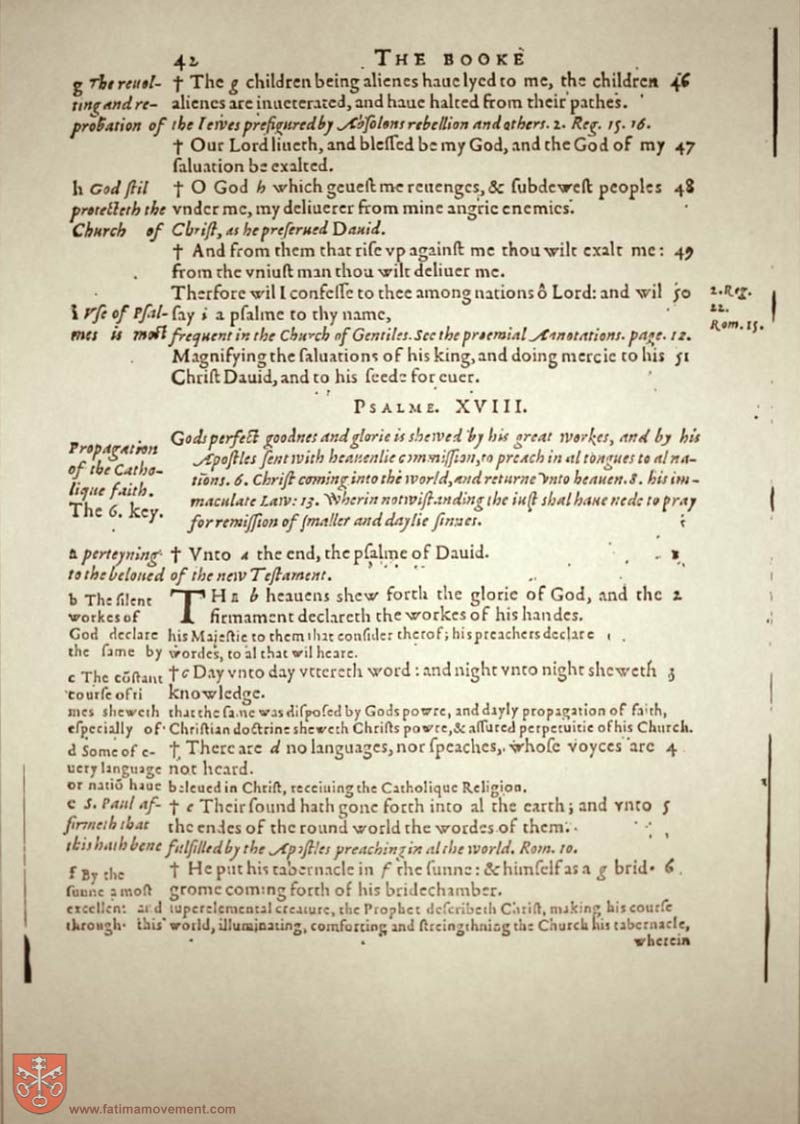 42 THE BOOKE
g The reuol- † The g children being alienes haue lyed to me, the children 46
ting and re- alienes are inueterated, and haue halted from their pathes.
probation of the Iewes prefigured by Absolons rebellion and others. 2. Reg. 15. 16.
† Our Lord liueth, and blessed be my God, and the God of my 47
saluation be exalted.
h God stil † O God h which geuest me reuenges, & subdewest peoples 48
protecteth the vnder me, my deliuerer from mine angrie enemies.
Church of Christ, as he preserued Dauid.
† And from them that rise vp against me thou wilt exalt me: 49
from the vniust man thou wilt deliuer me.
Therfore wil I confesse to thee among nations ô Lord: and wil 50 2. Reg.
i Vse of Psal- say i a psalme to thy name, 22.
mes is most frequent in the Church of Gentiles. See the proemial Annotations. page. 12. Rom. 15.
Magnifying the saluations of his king, and doing mercie to his 51
Christ Dauid, and to his seede for euer.
PSALME. XVIII.
Gods perfect goodnes and glorie is shewed by his great workes, and by his
Propagation Apostles sent with heauenlie commission, to preach in al tongues to al na-
of the Catho- tions. 6. Christ coming into the world, and returne vnto heauen. 8. his im-
lique faith. maculate Law: 13. Wherin notwistanding the iust shal haue nede to pray
The 6. key. for remission of smaller and daylie sinnes.
a perteyning † Vnto a the end, the psalme of Dauid. 1
to the beloued of the new Testament.
b The silent THE b heauens shew forth the glorie of God, and the 2
workes of firmament declareth the workes of his handes.
God declare his Majestie to them that consider therof; his preachers declare
the same by wordes, to al that wil heare.
c The cõstant † c Day vnto day vttereth word: and night vnto night sheweth 3
course of ti knowledge.
mes sheweth that the same was disposed by Gods powre, and dayly propagation of faith,
especially of Christian doctrine sheweth Christs powre, & assured perpetuitie of his Church.
d Some of e- † There are d no languages, nor speaches, whose voyces are 4
uery language not heard.
or natiõ haue beleued in Christ, receiuing the Catholique Religion.
e S. Paul af- † e Their sound hath gone forth into al the earth; and vnto 5
firmeth that the endes of the round world the wordes of them.
this hath bene fulfilled by the Apostles preaching in al the world. Rom. 10.
f By the † He put his tabernacle in f the sunne: & himself as a g brid- 6
sunne a most grome coming forth of his bridechamber.
excellent and superelemental creature, the Prophet describeth Christ, making his course
through this world, illuminating, comforting and streingthning the Church his tabernacle,
wherein
www.fatimamovement.com